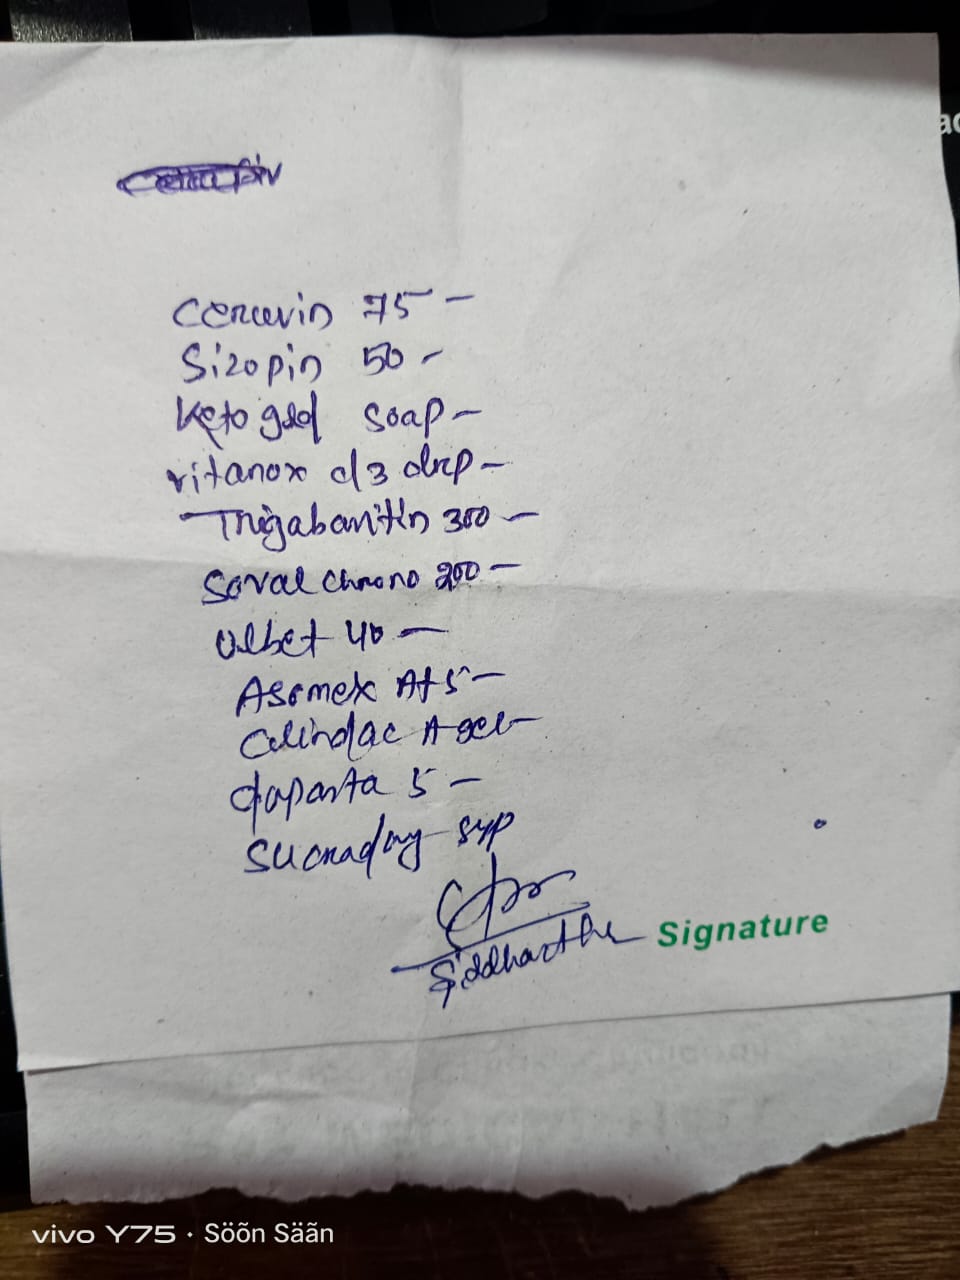 ac
Ceruvin 75 -
Sizopin 50 -
Keto gold soap -
vitanox d3 drp -
Trigabantin 300 -
Soval chrono 200 -
Olbet 40 -
Asomex At 5 -
Clindac A gel -
daparta 5 -
Sucraday syp
Siddhartha Signature
vivo Y75 · Söõn Sään